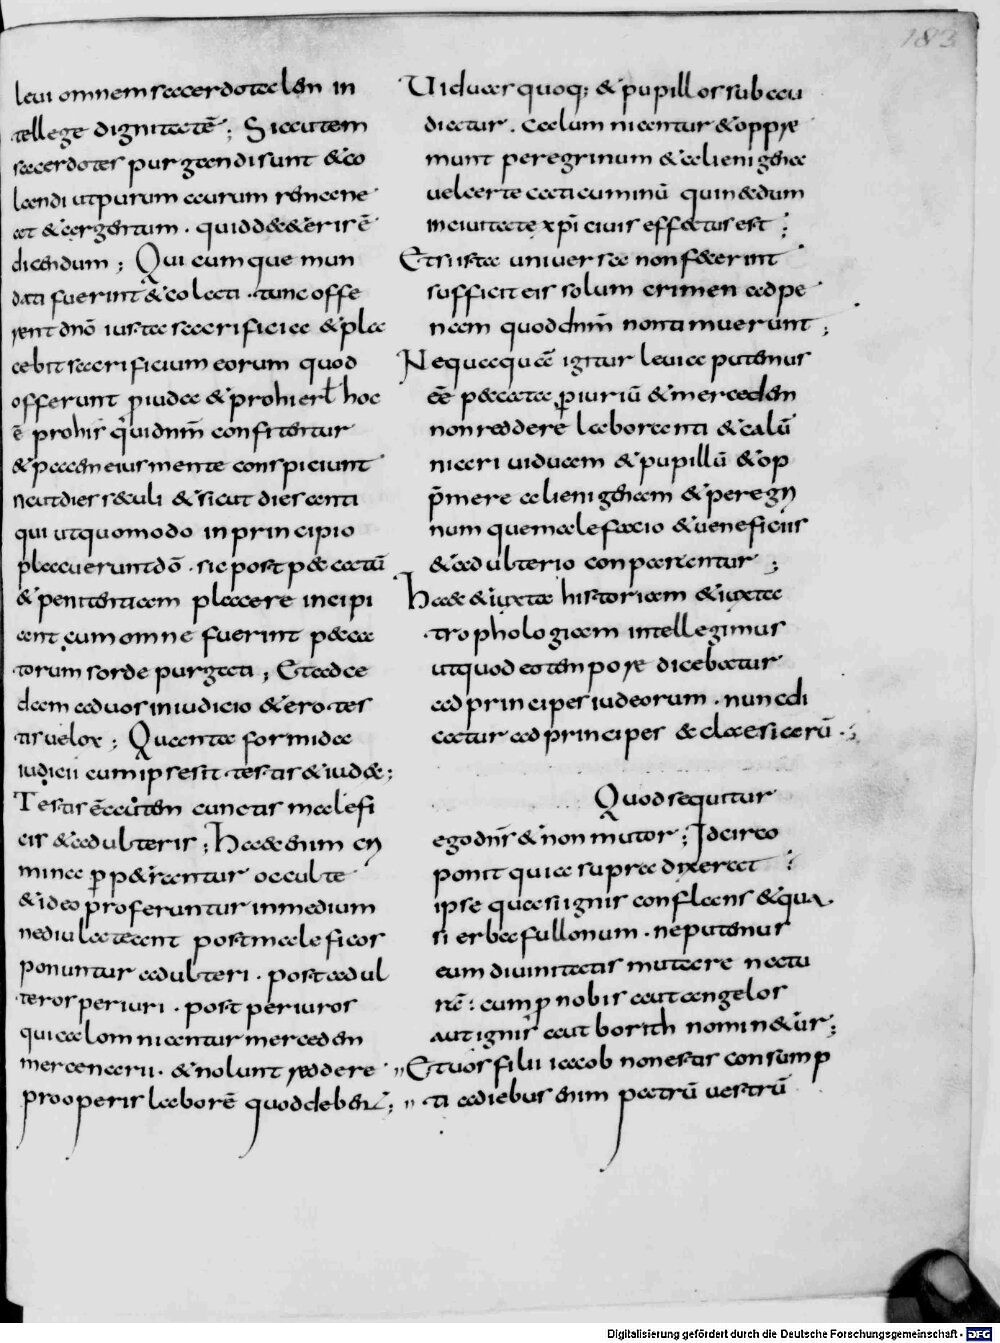 183
leui omnem sacerdotalem in
tellege dignitatē; Si autem
sacerdotes purgandi sunt & co
landi ut purum aurum remane
at & argentum. quid de ceteris ē
dicendum; Qui cumque mun
dati fuerint & colati. tunc offe
rent dnō iusta sacrificia & pla
cebit sacrificium eorum quod
offerunt ꝑ iuda & pro hierłm hoc
ē pro his qui dnm̄ confitentur
& pacem eius mente conspiciunt
sicut dies sæculi & sicut dies anti
qui ut quomodo in principio
placuerunt dō. sic post peccatū
& penitentiam placere incipi
ant cum omne fuerint pecca
torum sorde purgati; Et acce
dam ad uos in iudicio & ero tes
tis uelox; Quanta formida
iudicii cum ipse sit testis & iudex;
Testis ē autem cunctis malefi
cis & adulteris; Haec enim cri
mina ꝑpetrantur occulte
& ideo proferuntur in medium
ne diu lateant post maleficos
ponuntur adulteri. post adul
teros periuri. post periuros
qui calomniantur mercedem
mercenarii. & nolunt reddere
pro operis laborē quod debent;
Uiduas quoq; & pupillos subau
diatur. calumniantur & oppri
munt peregrinum & alienigena
uel certe caticuminū qui nedum
in ciuitate xpī ciuis effectus est;
Et si ista uniuersa non fecerint
sufficit eis solum crimen ad pe
nam quod dnm̄ non timuerunt;
Ne quaquā igitur leuia putemus
ēē peccata ꝑiuriū & mercedem
non reddere laboranti & calū
niari uiduam & pupillū & op
p̄mere alienigenam & peregri
num que maleficio & ueneficiis
& adulterio conparantur;
Haec & iuxta historiam & iuxta
trophologiam intellegimus
ut quod eo tempore dicebatur
ad principes iudeorum. nunc di
catur ad principes æclesiarū.
Quod sequitur
ego dns̄ & non mutor; Idcirco
ponit quia supra dixerat
ipse quasi ignis conflans & qua
si erba fullonum. ne putemus
eum diuinitatis mutare natu
rā: cum ꝓ nobis aut angelos
aut ignis aut borith nominetur;
Et uos filii iacob non estis consump
ti a diebus enim patrū uestrū
Digitalisierung gefördert durch die Deutsche Forschungsgemeinschaft - DFG